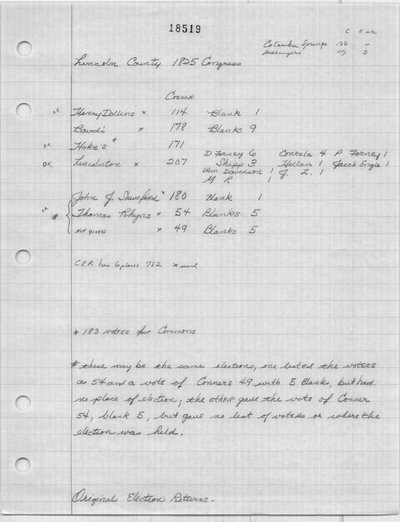 18519
C B ck
Catawba Springs 122 -
49 5
Lincoln County 1825 Congress
Conner
ok Henry Dellins x 114 Blank 1
Baird's x 178 Blanks 9
ok Hoke's + 171
ok Lincolnton x 207 D Forney 6 Conrala 4 P Forney 1
Shipp 3 Hollan 1 Jacob Engle 1
Wm Davidson 1 J. Z. 1
M R 1
John J. Shuford x 180 Blank 1
* Thomas Rhyne x 54 Blanks 5
not given x 49 Blanks 5
CER has 6 places 732 x used
+ 183 votes for Commons
* these may be the same elections, one listed the voters
as 54 and a vote of Conners 49 with 5 Blanks, but had
no place of election; the other gave the vote of Conner
54, blank 5, but gave no list of voters or where the
election was held.
Original Election Returns.